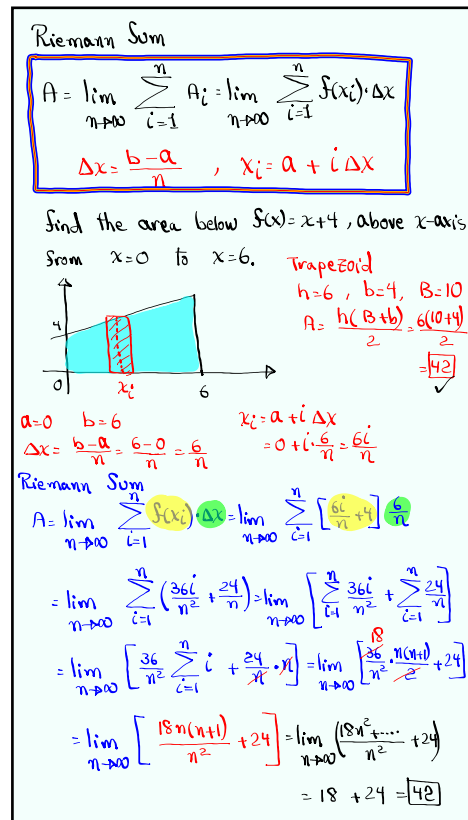 Riemann Sum
A = lim n→∞ ∑ i=1 n A_i = lim n→∞ ∑ i=1 n f(x_i)·Δx
Δx = (b-a)/n , x_i = a + i Δx
find the area below f(x) = x+4 , above x-axis
from x=0 to x=6.
Trapezoid
h=6 , b=4, B=10
A = h(B+b)/2 = 6(10+4)/2
= 42
✓
4
0 x_i 6
a=0 b=6
Δx = (b-a)/n = (6-0)/n = 6/n
x_i = a + i Δx
= 0 + i·6/n = 6i/n
Riemann Sum
A = lim n→∞ ∑ i=1 n f(x_i)·Δx = lim n→∞ ∑ i=1 n [6i/n + 4] 6/n
= lim n→∞ ∑ i=1 n (36i/n² + 24/n) = lim n→∞ [∑ i=1 n 36i/n² + ∑ i=1 n 24/n]
= lim n→∞ [36/n² ∑ i=1 n i + 24/n · n] = lim n→∞ [18 36/n² · n(n+1)/2 + 24]
= lim n→∞ [18n(n+1)/n² + 24] = lim n→∞ (18n²+..../n² + 24)
= 18 + 24 = 42